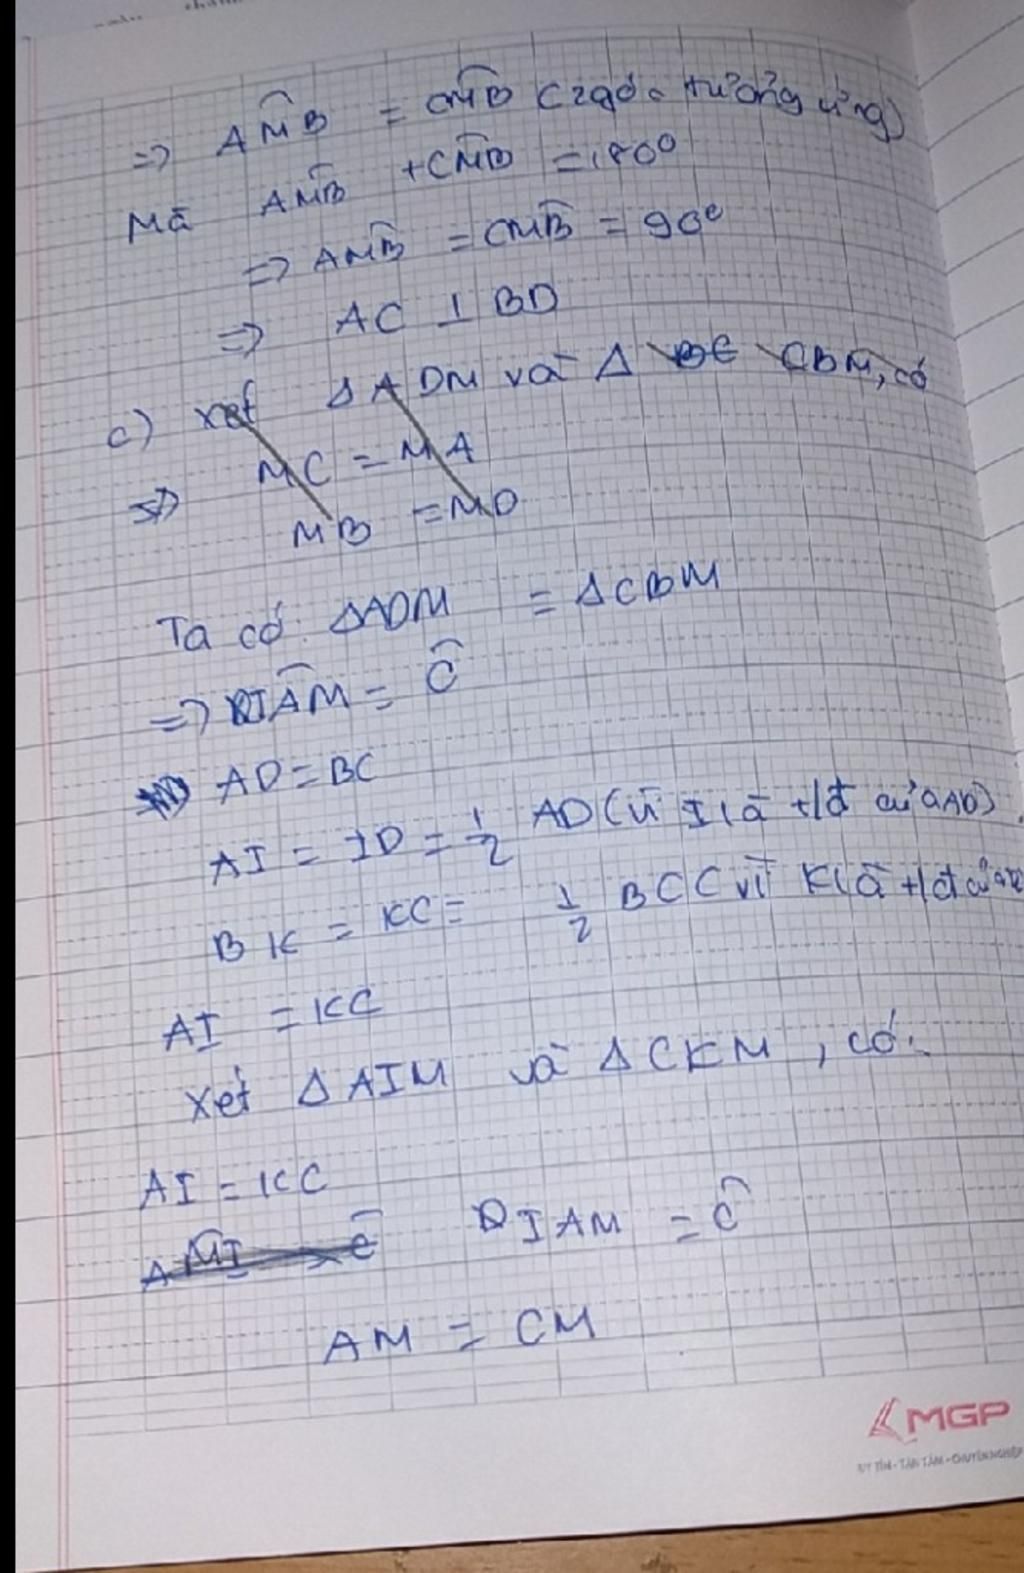 => AMB = CMB (2 góc tương ứng)
Mà AMB + CMB = 180°
=> AMB = CMB = 90°
=> AC ⊥ BD
c) xét ΔADM và Δ CBM, có
=> MC = MA
MB = MD
Ta có: ΔADM = ΔCBM
=> IAM = C
AD = BC
AI = ID = 1/2 AD (vì I là t/đ của AD)
BK = KC = 1/2 BC (vì K là t/đ của
AI = KC
Xét ΔAIM và ΔCKM, có:
AI = KC
IAM = C
AM = CM
MGP
UY TÍN - TẬN TÂM - CHUYÊN NGHIỆP